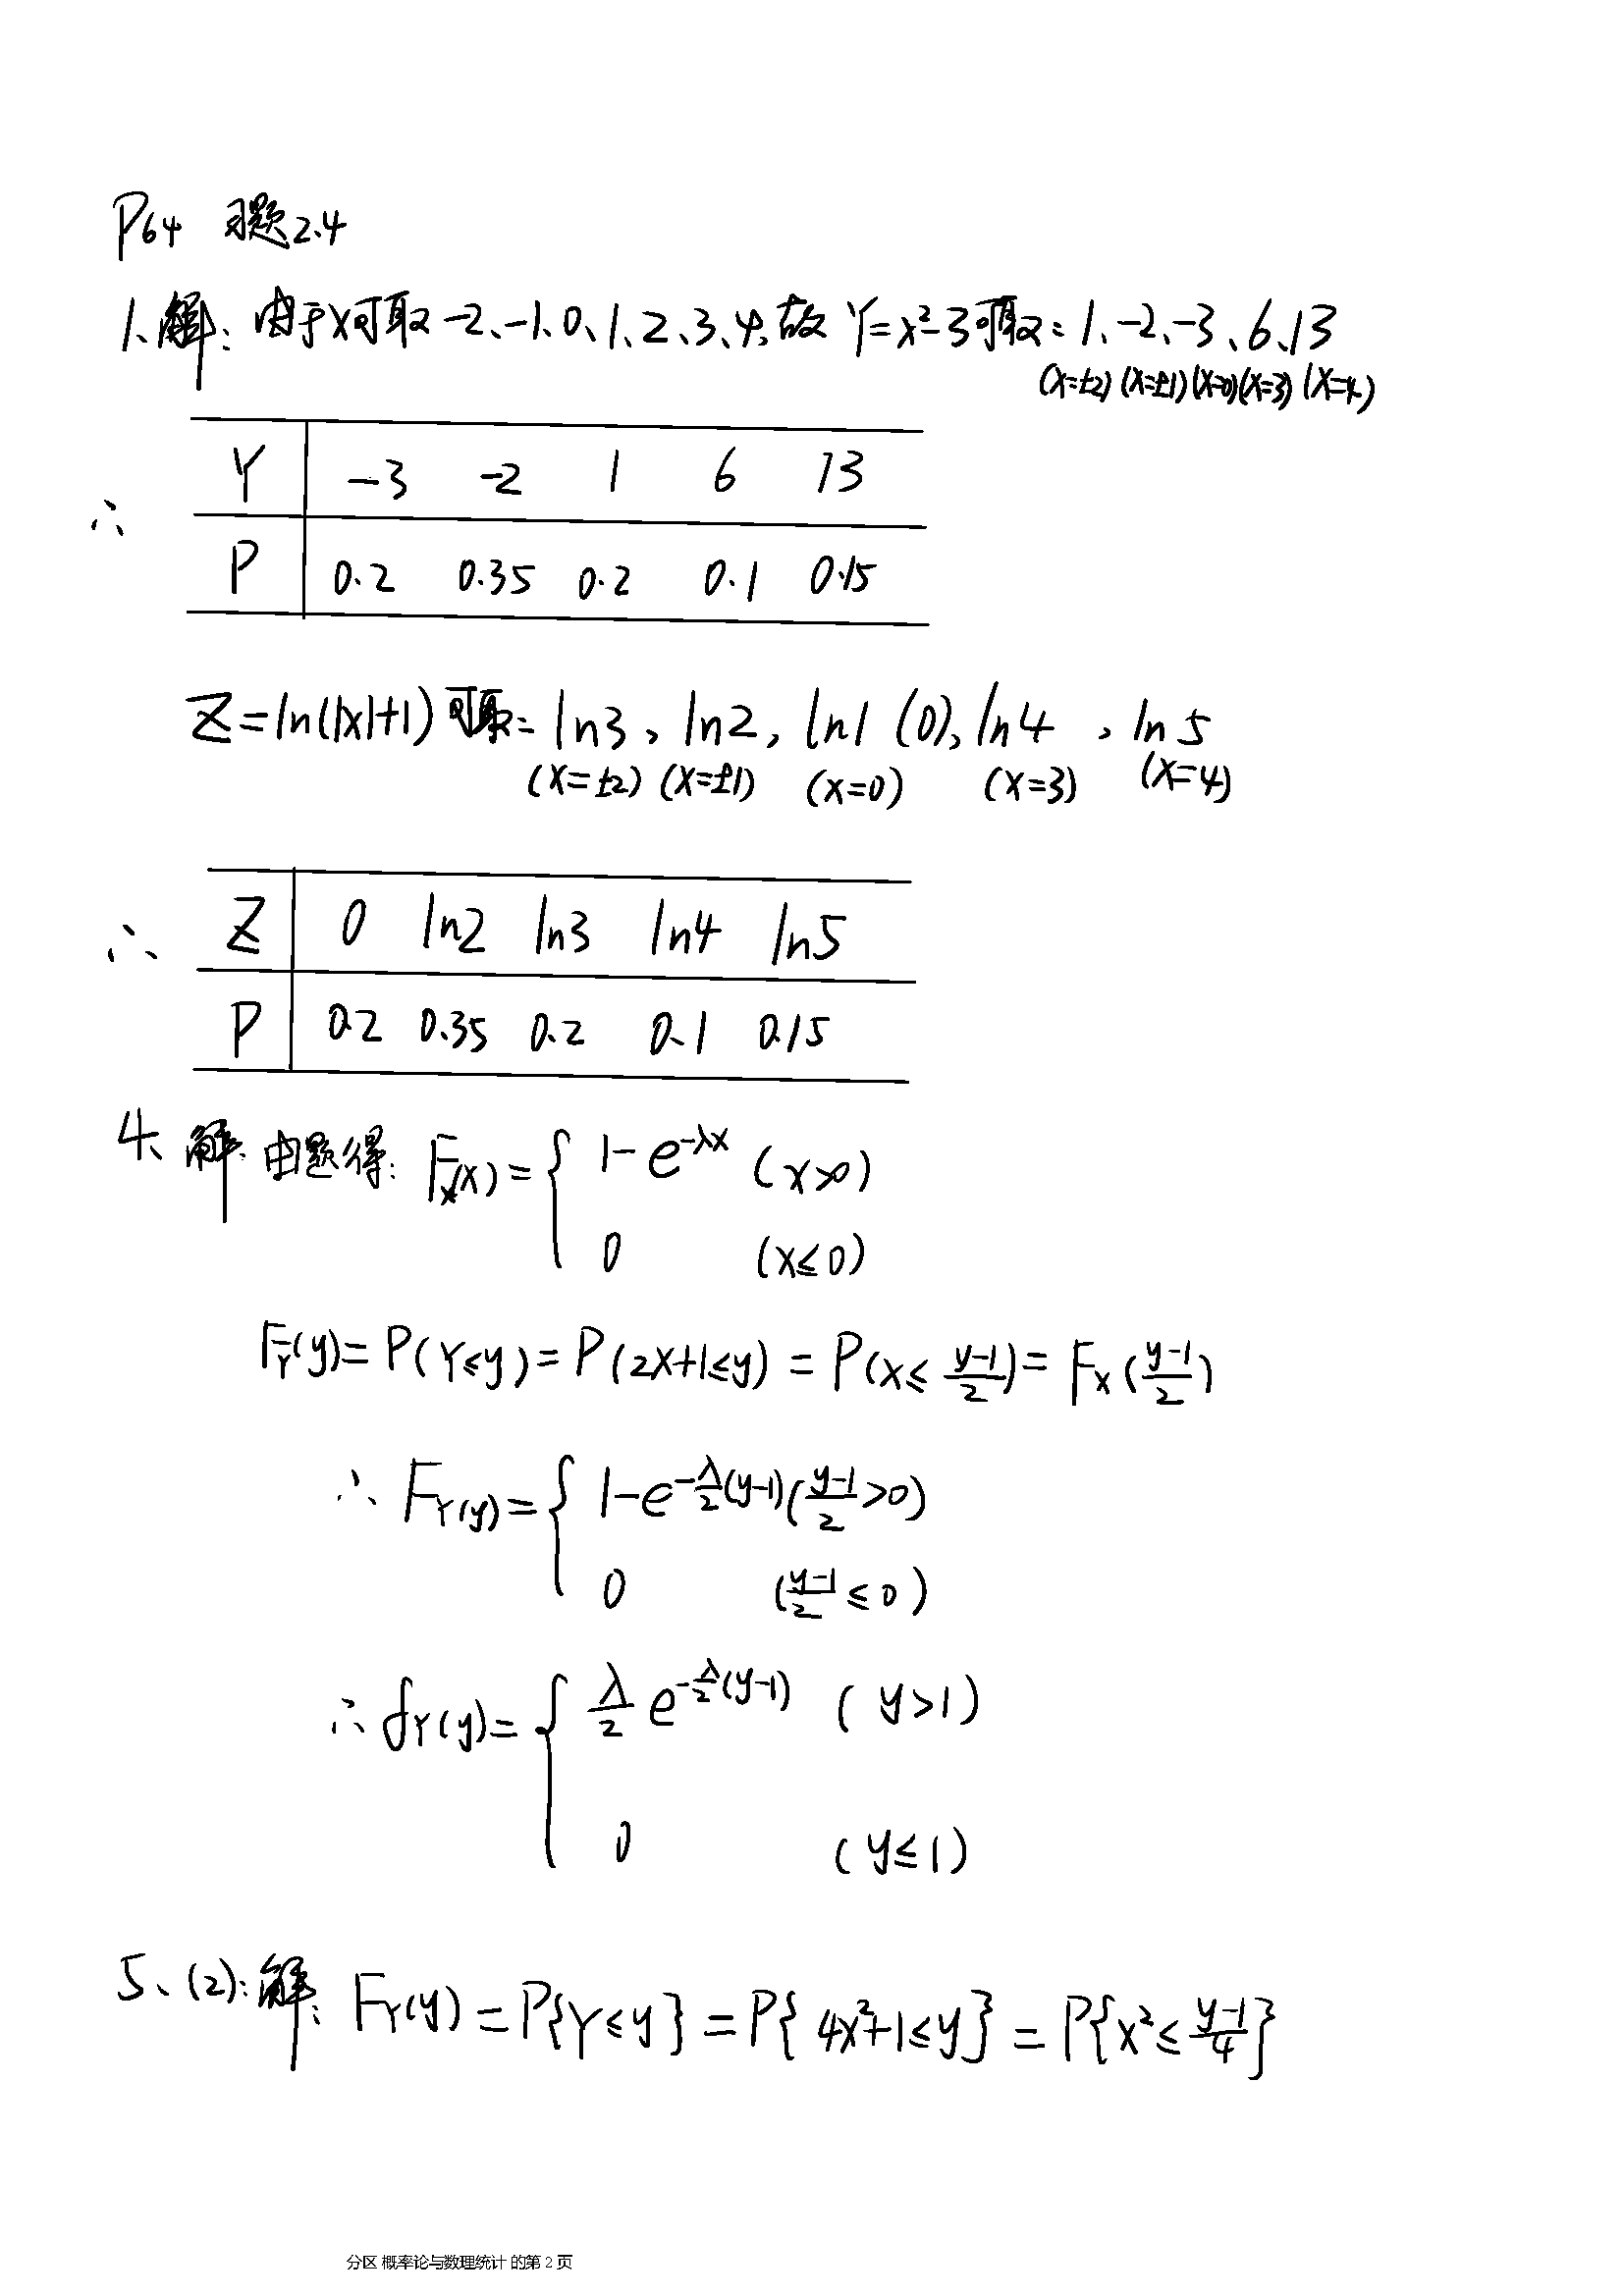 P64 习题2.4
1、解：由于X可取 -2、-1、0、1、2、3、4，故 Y=x²-3可取：1、-2、-3、6、13
(X=±2) (X=±1) (X=0) (X=3) (X=4)
Y | -3 -2 1 6 13
∴
P | 0.2 0.35 0.2 0.1 0.15
Z=ln(|X|+1) 可取：ln3, ln2, ln1 (0), ln4, ln5
(X=±2) (X=±1) (X=0) (X=3) (X=4)
∴ Z | 0 ln2 ln3 ln4 ln5
P | 0.2 0.35 0.2 0.1 0.15
4、解：由题得：F_X(x) = { 1-e^{-λx} (x>0)
0 (x≤0)
F_Y(y) = P(Y≤y) = P(2X+1≤y) = P(X≤ (y-1)/2) = F_X((y-1)/2)
∴ F_Y(y) = { 1-e^{-λ/2(y-1)} ((y-1)/2>0)
0 ((y-1)/2 ≤ 0)
∴ f_Y(y) = { λ/2 e^{-λ/2(y-1)} (y>1)
0 (y≤1)
5、(2)：解：F_Y(y) = P{Y≤y} = P{4X²+1≤y} = P{X²≤ (y-1)/4}
分区 概率论与数理统计 的第 2 页